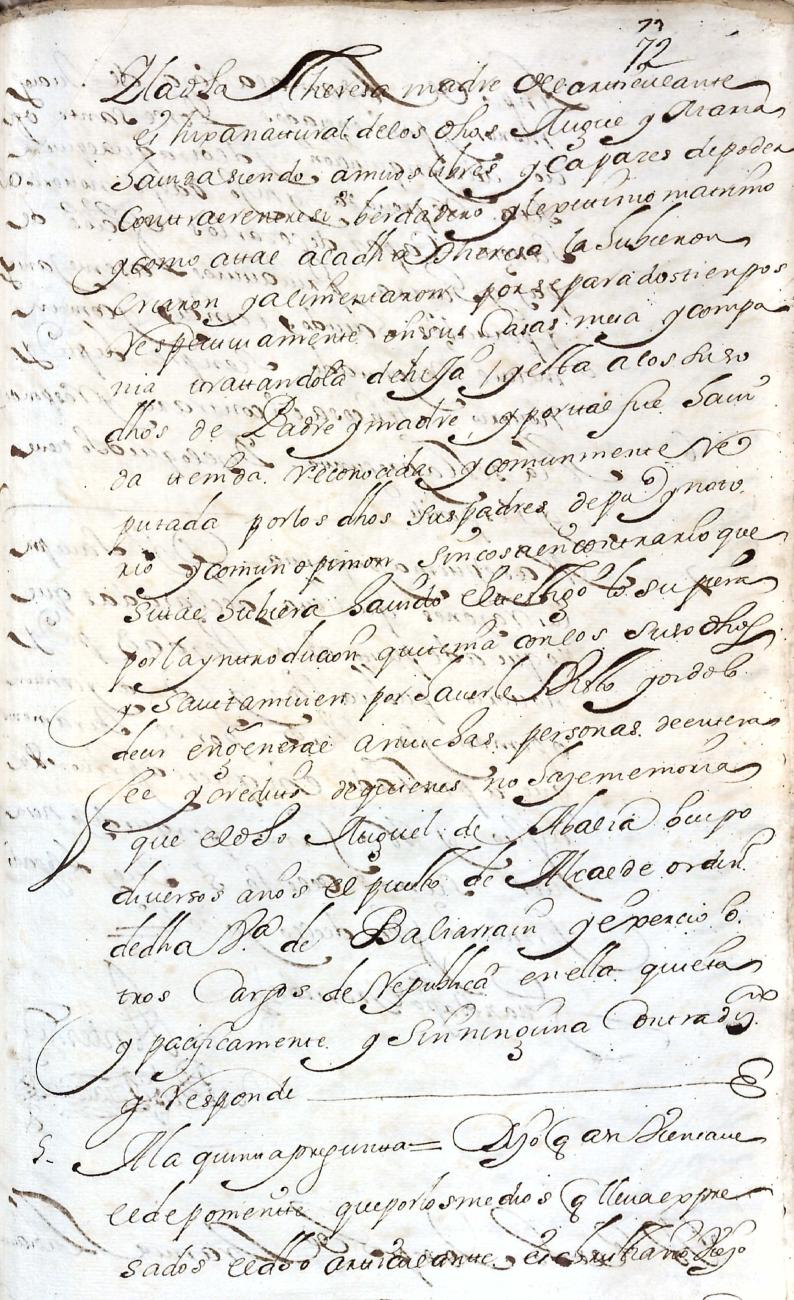 73
72
Y la dha Theresa madre del articulante
es hixa natural de los dhos Miguel y Maria
Sainza siendo amvos libres, y Capazes de poder
Contraer entre si berdadero y lexitimo matrimo
y como a tal a la dha Theresa la hubieron
Criaron y alimentaron por separados tienpos
respectivamente en sus Casas mesa y compa
nia trattandola de hija, y esta a los suso
dhos de Padre y madre, y por tal fue havi
da tenida reconocida y comunmente Re
putada por los dhos sus padres de pu.co y noto
rio y comun opinion sin cosa en contrario que
si tal hubiera havido el testigo lo supiera
por la yntroducion que tenia con los suso dhos
y save tamvien por haverle visto y oido lo
decir en general a muchas personas de entera
fee y credito de quienes no haze memoria
que el dho Miguel de Abalia ocupo
diversos años el puesto de Alcalde ordin.o
de dha V.a de Baliarrain y exercio o
tros Cargos de Republica en ella quieta
y pacificamente y sin ninguna Contradi.on
y Responde
5. A la quinta pregunta = Dijo q an vien save
el deponente que por los medios q lleva expre
sados el dho articulante es christiano viejo